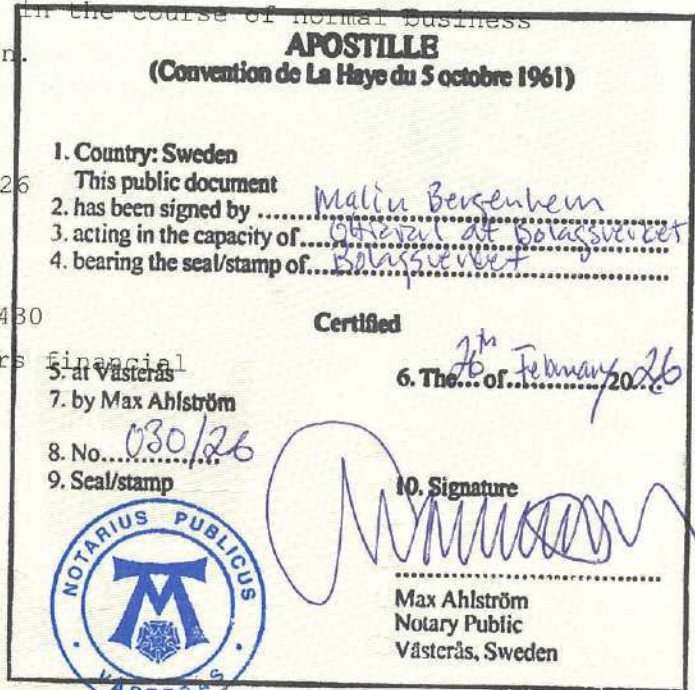 in the course of normal business
n.
APOSTILLE
(Convention de La Haye du 5 octobre 1961)
1. Country: Sweden
26
This public document
2. has been signed by Malin Bergenhem
3. acting in the capacity of at Bolagsverket
4. bearing the seal/stamp of Bolagsverket
480
Certified
rs financial
5. at Västerås
6. The 26th of February 2026
7. by Max Ahlström
8. No. 030/26
9. Seal/stamp
10. Signature
NOTARIUS PUBLICUS
VÄSTERÅS
Max Ahlström
Notary Public
Västerås, Sweden